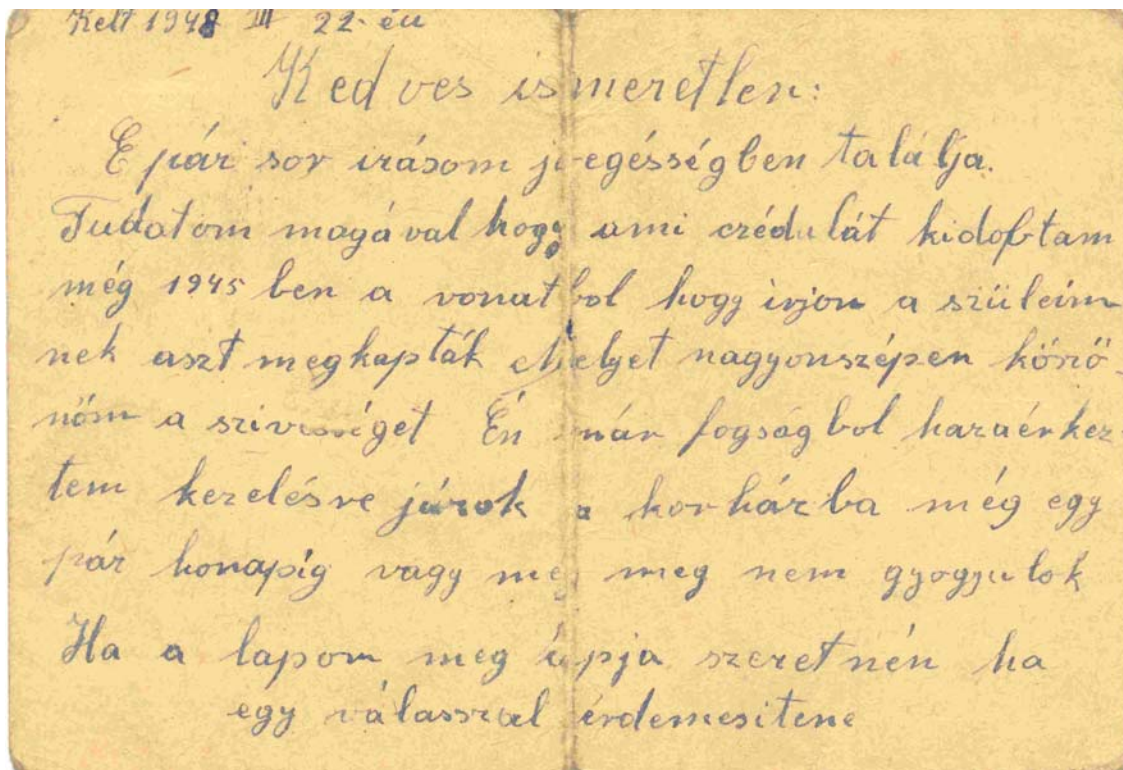 Kelt 1948 III 22-én
Kedves ismeretlen:
E pár sor irásom jó egésségben találja.
Tudatom magával hogy ami czédulát kidobtam
még 1945 ben a vonatbol hogy irjon a szüleim
nek aszt megkapták nagyonszépen köszö-
nöm a szivességet Én már fogságbol hazaérkez-
tem kezelésre járok a korházba még egy
pár honapig vagy meg nem gyogyulok
Ha a lapom meg kapja szeretnén ha
egy válasszal érdemesitene